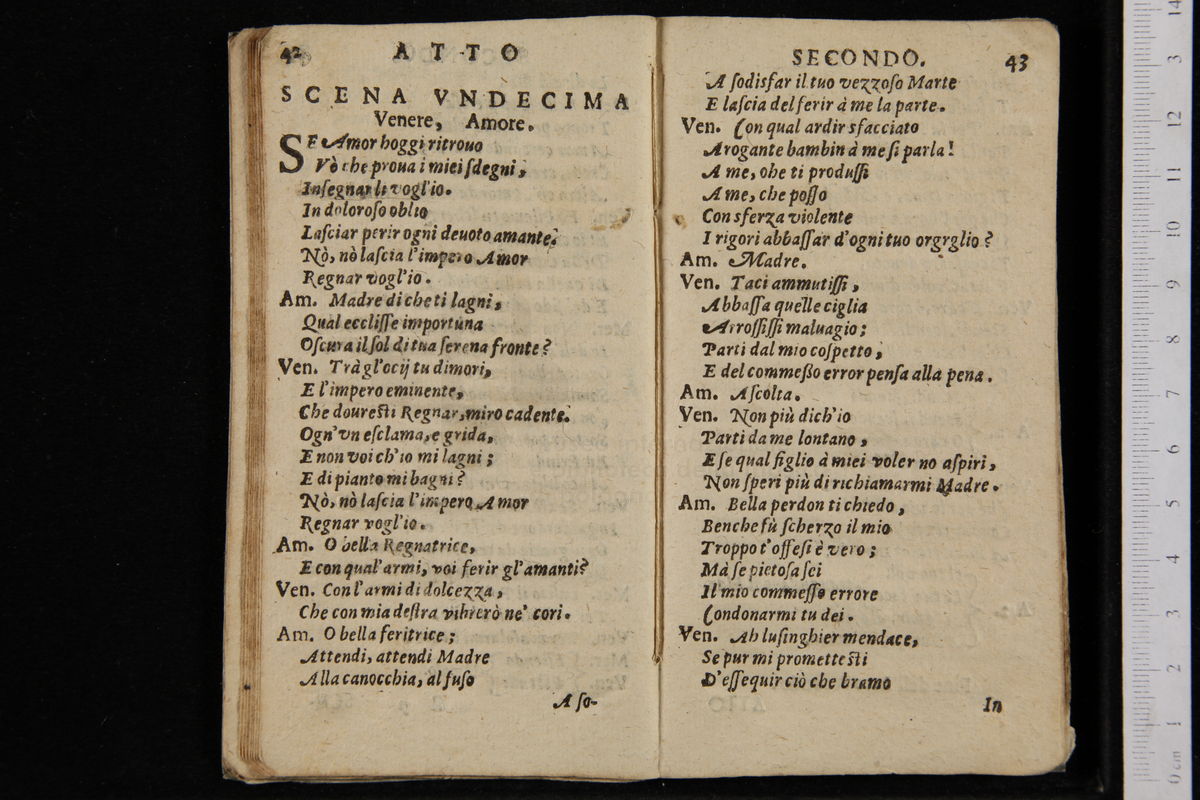 42 ATTO
SCENA VNDECIMA
Venere, Amore.
SE Amor hoggi ritrouo
Vò che proua i miei sdegni,
Insegnarli vogl'io.
In doloroso oblio
Lasciar perir ogni deuoto amante?
Nò, nò lascia l'impero Amor
Regnar vogl'io.
Am. Madre di che ti lagni,
Qual ecclisse importuna
Oscura il sol di tua serena fronte?
Ven. Trà gl'ocij tu dimori,
E l'impero eminente,
Che douresti Regnar, miro cadente.
Ogn'vn esclama, e grida,
E non voi ch'io mi lagni;
E di pianto mi bagni?
Nò, nò lascia l'impero Amor
Regnar vogl'io.
Am. O bella Regnatrice,
E con qual'armi, voi ferir gl'amanti?
Ven. Con l'armi di dolcezza,
Che con mia destra vibrerò ne' cori.
Am. O bella feritrice;
Attendi, attendi Madre
Alla canocchia, al fuso
A so-
SECONDO. 43
A sodisfar il tuo vezzoso Marte
E lascia del ferir à me la parte.
Ven. Con qual ardir sfacciato
Arogante bambin à me si parla!
A me, che ti produssi
A me, che posso
Con sferza violente
I rigori abbassar d'ogni tuo orgrglio?
Am. Madre.
Ven. Taci ammutissi,
Abbassa quelle ciglia
Arrossissi maluagio;
Parti dal mio cospetto,
E del commesso error pensa alla pena.
Am. Ascolta.
Ven. Non più dich'io
Parti da me lontano,
E se qual figlio à miei voler no aspiri,
Non speri più di richiamarmi Madre.
Am. Bella perdon ti chiedo,
Benche fù scherzo il mio
Troppo t'offesi è vero;
Mà se pietosa sei
Il mio commesso errore
Condonarmi tu dei.
Ven. Ah lusinghier mendace,
Se pur mi prometesti
D'essequir ciò che bramo
In